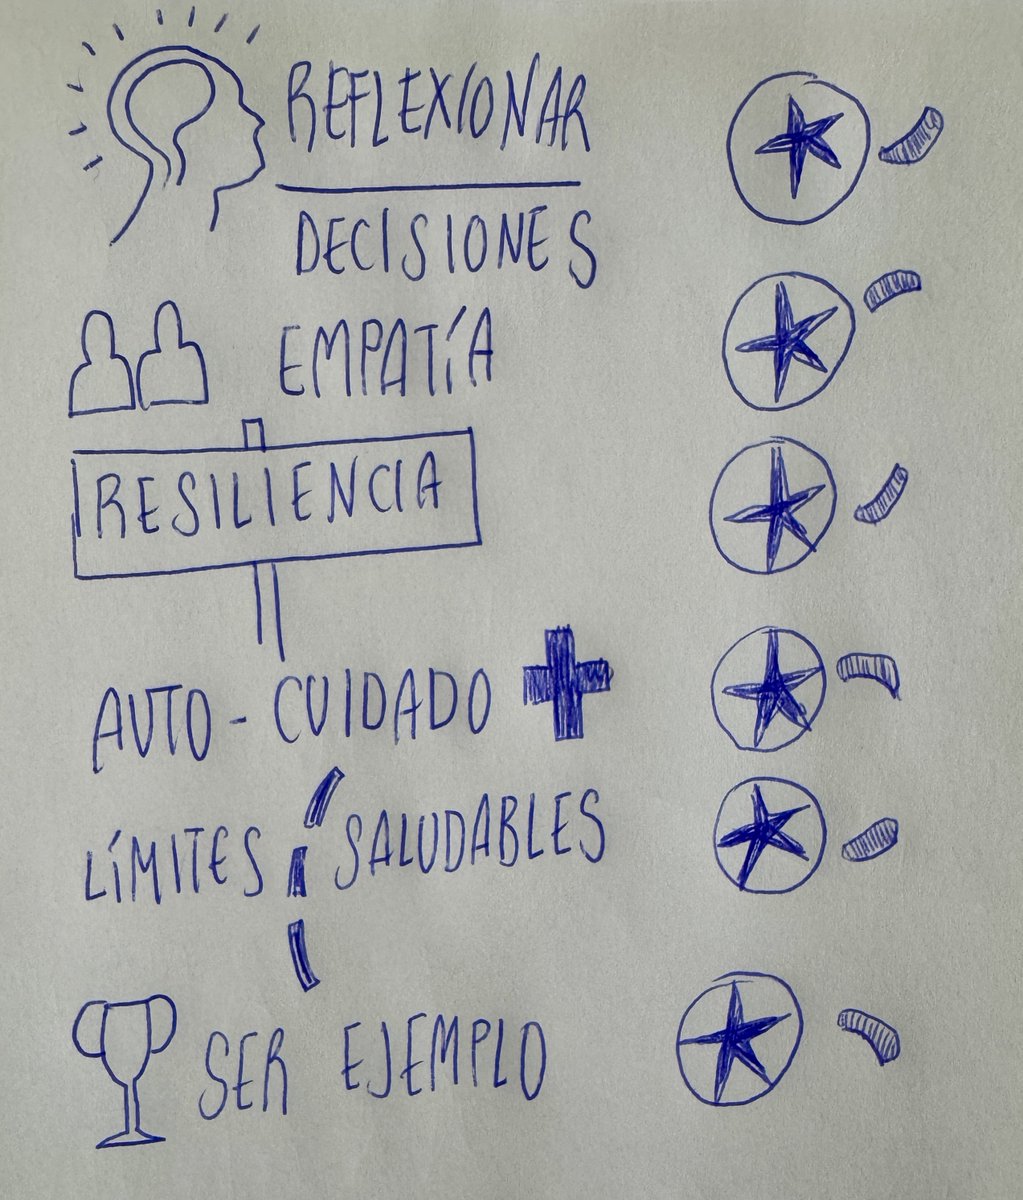 REFLEXIONAR
DECISIONES
EMPATÍA
RESILIENCIA
AUTO-CUIDADO
LÍMITES SALUDABLES
SER EJEMPLO